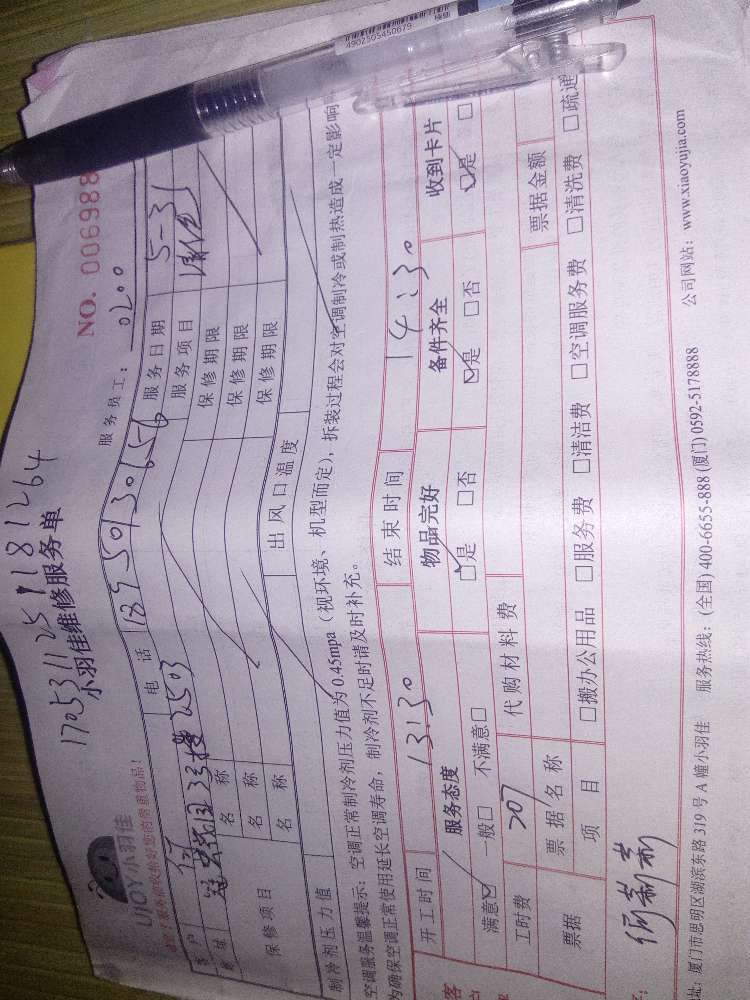 4902505450679
17053112518 1264
小羽佳维修服务单
NO. 006988
UJOY小羽佳
服务员工：0200
客户
电话 18950130656
服务日期 5-31
地址 3号楼2503
服务项目
保修项目
名称
保修期限
名称
保修期限
名称
保修期限
制冷剂压力值
出风口温度
空调服务温馨提示：空调正常制冷剂压力值为0.45mpa（视环境、机型而定），拆装过程会对空调制冷或制热造成一定影响
为确保空调正常使用延长空调寿命，制冷剂不足时请及时补充。
开工时间 13:30 结束时间 14:30
服务态度 物品完好 备件齐全 收到卡片
满意☑ 一般□ 不满意□ ☑是 □否 ☑是 □否 ☑是 □
工时费 207 代购材料费
票据 票据名称 票据金额
项目 □搬办公用品 □服务费 □清洁费 □空调服务费 □清洗费 □疏通
址：厦门市思明区湖滨东路319号A幢小羽佳 服务热线：(全国) 400-6655-888 (厦门) 0592-5178888 公司网站：www.xiaoyujia.com